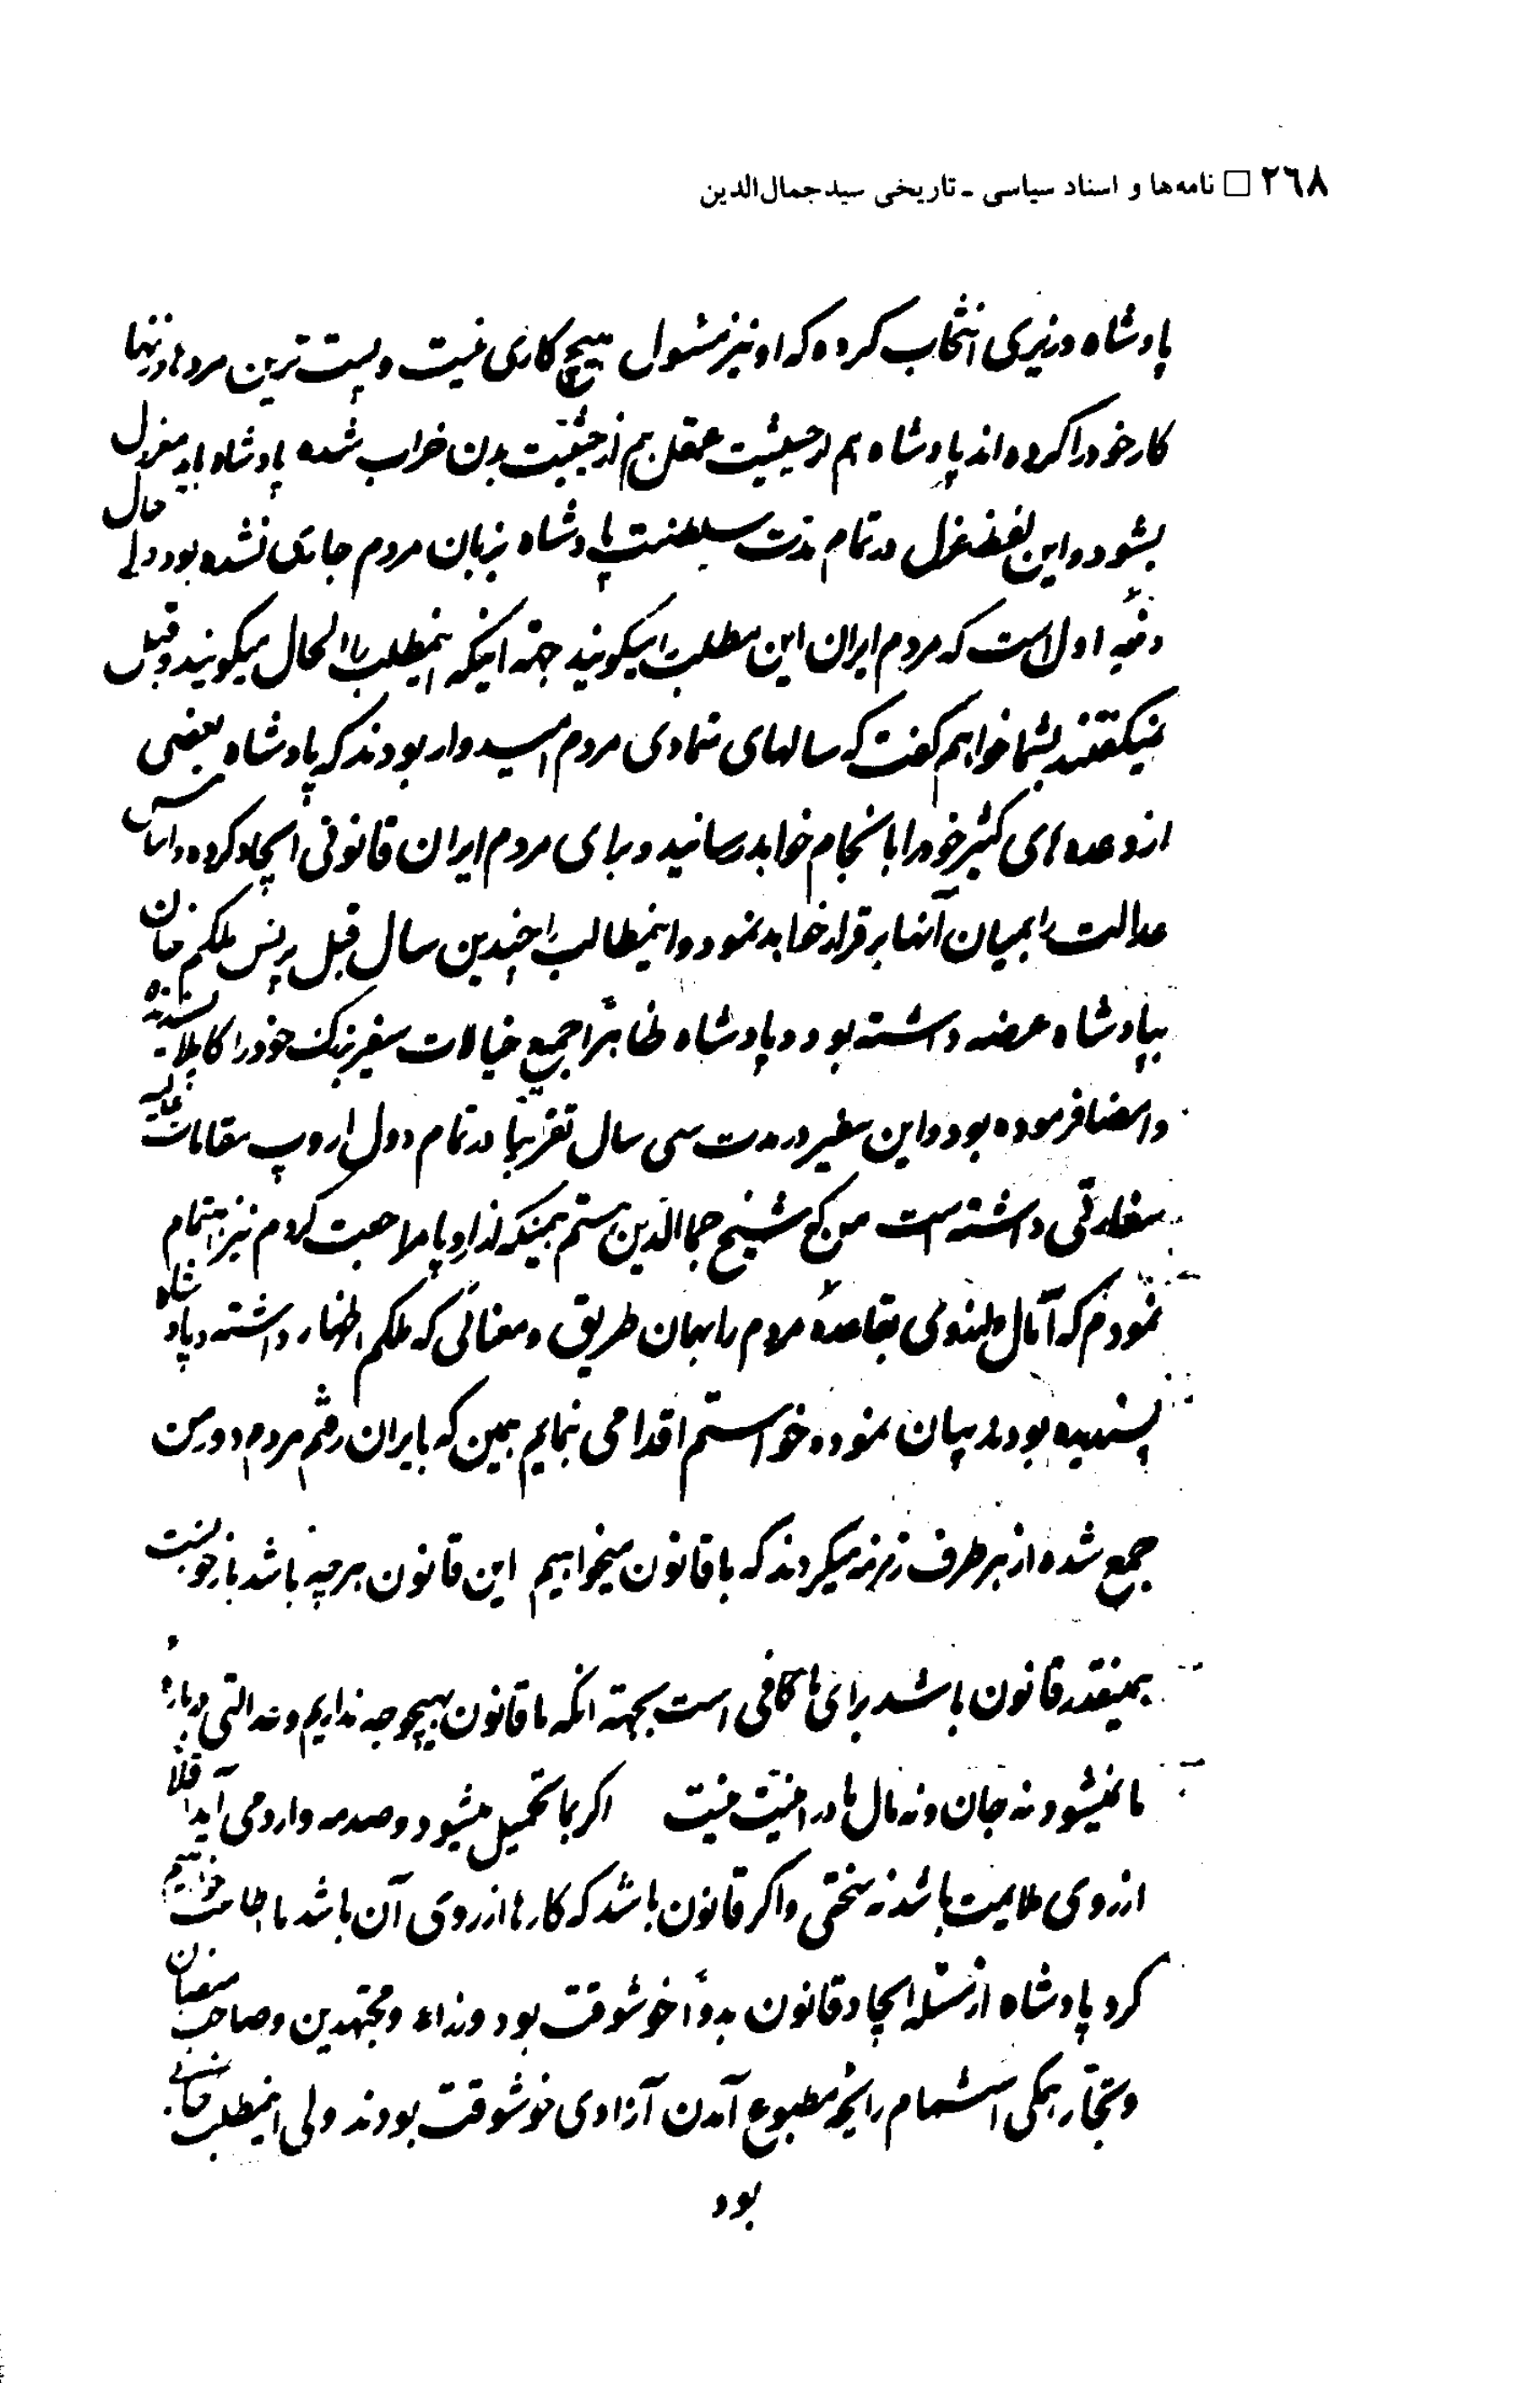 ۲٦۸ □ نامه‌ها و اسناد سیاسی - تاریخی سید جمال‌الدین
پادشاه وزیری انتخاب کرده که او نیز مسئول هیچ کاری نیست و پست ترین مردها
کار خود را کرده اند پادشاه هم از حیثیت عقل هم از حیثیت بدن خراب شده پادشاه باید معزول
بشود و این لفظ عزل در تمام مدت سلطنت پادشاه بزبان مردم جاری نشده بود ولی حال
دفعه اول است که مردم ایران این مطلب را میگویند جهة اینکه اینمطلب را الحال میگویند و قبل
نمیگفتند بشما خواهم گفت که سالهای تمادی مردم امیدوار بودند که پادشاه بعضی
از وعده های کثیر خود را بانجام خواهد رسانید و برای مردم ایران قانونی ایجاد کرده و اساس
عدالت را بمیان آنها برقرار خواهد نمود و اینمطالب را چندین سال قبل پرنس ملکم خان
بپادشاه عرضه داشته بود و پادشاه ظاهراً جمیع خیالات سفیر بزرگ خود را کاملا پسندیده
و امضا فرموده بود و این سفیر در مدت سی سال تقریباً در تمام دول اروپ مقامات عالیه
سفارتی داشته است من که شیخ جمال الدین هستم همینکه از اروپا مراجعت کردم نیز اهتمام
نمودم که آمال و بلندی مقاصد مردم را بهمان طریق و معنائی که ملکم اظهار داشته و پادشاه
پسندیده بودند بیان نموده خواستم اقدامی نمایم همین که بایران رفتم مردم دور من
جمع شده از هر طرف زمزمه میکردند که ما قانون میخواهیم این قانون هر چه باشد باز خوبست
همینقدر قانون باشد برای ما کافی است بجهة انکه ما قانون بهیچوجه نداریم و عدالتی درباره
ما نمیشود نه جان و نه مال ما در امنیّت نیست اگر بما تحمیل میشود و صدمه وارد می آید اقلاً
از روی ملایمت باشد نه سختی و اگر قانون باشد که کارها از روی آن باشد ما اطاعت خواهیم
کرد پادشاه از مسئله ایجاد قانون بدواً خوشوقت بود وزراء و مجتهدین و صاحب منصبان
و تجّار همگی استشمام رایحه مطبوع آمدن آزادی خوشوقت بودند ولی اینمطلب
بود